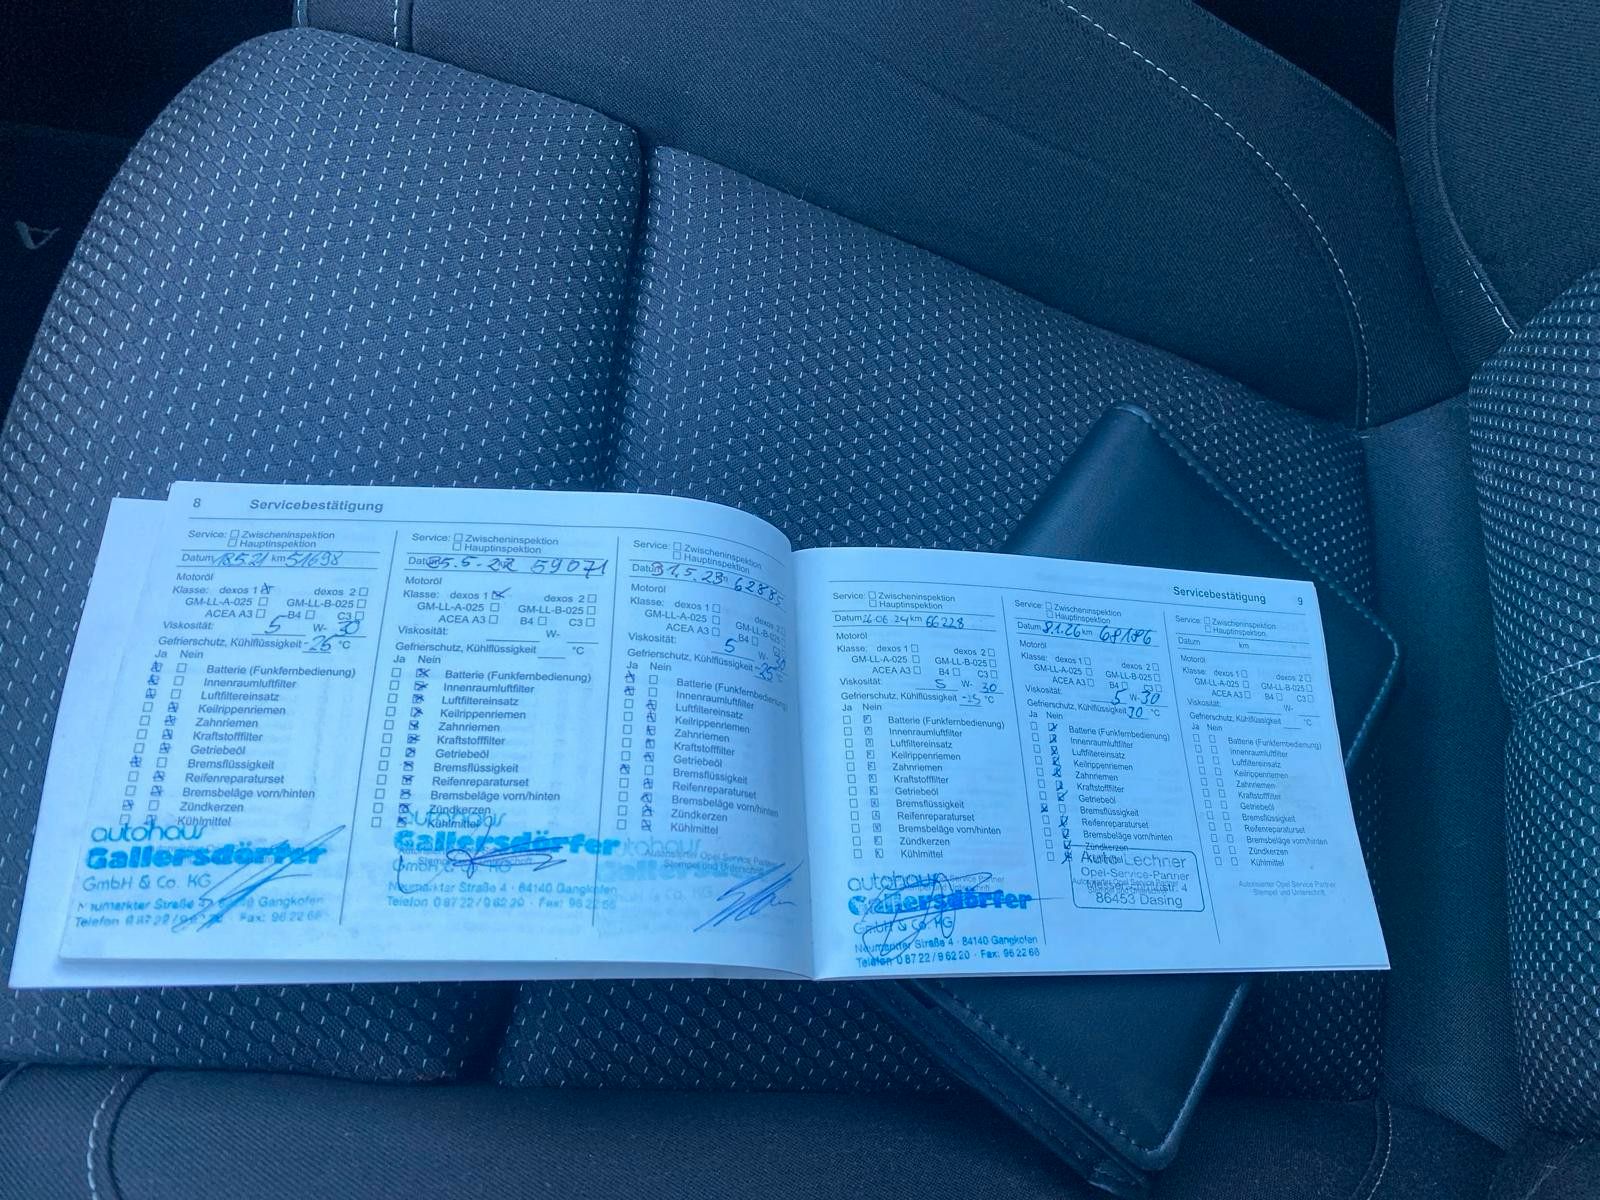 8 Servicebestätigung
Service: Zwischeninspektion
Hauptinspektion
Datum 18.5.21 km 51698
Motoröl
Klasse: dexos 1 dexos 2
GM-LL-A-025 GM-LL-B-025
ACEA A3 B4 C3
Viskosität: 5 W- 30
Gefrierschutz, Kühlflüssigkeit -25 °C
Ja Nein
Batterie (Funkfernbedienung)
Innenraumluftfilter
Luftfiltereinsatz
Keilrippenriemen
Zahnriemen
Kraftstofffilter
Getriebeöl
Bremsflüssigkeit
Reifenreparaturset
Bremsbeläge vorn/hinten
Zündkerzen
Kühlmittel
autohaus
Gallersdörfer
GmbH & Co. KG
Neumarkter Straße 84140 Gangkofen
Telefon 0 87 22/9 Fax: 96 22 66
Service: Zwischeninspektion
Hauptinspektion
Datum 5.5.22 59071
Motoröl
Klasse: dexos 1 dexos 2
GM-LL-A-025 GM-LL-B-025
ACEA A3 B4 C3
Viskosität: W-
Gefrierschutz, Kühlflüssigkeit °C
Ja Nein
Batterie (Funkfernbedienung)
Innenraumluftfilter
Luftfiltereinsatz
Keilrippenriemen
Zahnriemen
Kraftstofffilter
Getriebeöl
Bremsflüssigkeit
Reifenreparaturset
Bremsbeläge vorn/hinten
Zündkerzen
Kühlmittel
Gallersdörfer
GmbH & Co. KG
Neumarkter Straße 4 · 84140 Gangkofen
Telefon 0 87 22/9 62 20 · Fax: 96 22 66
Service: Zwischeninspektion
Hauptinspektion
Datum 31.5.23
Motoröl
Klasse: dexos 1 dexos 2
GM-LL-A-025 GM-LL-B-025
ACEA A3 B4
Viskosität: 5 W- 30
Gefrierschutz, Kühlflüssigkeit -25 °C
Ja Nein
Batterie (Funkfernbedienung)
Innenraumluftfilter
Luftfiltereinsatz
Keilrippenriemen
Zahnriemen
Kraftstofffilter
Getriebeöl
Bremsflüssigkeit
Reifenreparaturset
Bremsbeläge vorn/hinten
Zündkerzen
Kühlmittel
Autorisierter Opel Service Partner
Stempel und Unterschrift
Servicebestätigung 9
Service: Zwischeninspektion
Hauptinspektion
Datum 26.06 24 km 66228
Motoröl
Klasse: dexos 1 dexos 2
GM-LL-A-025 GM-LL-B-025
ACEA A3 B4 C3
Viskosität: 5 W- 30
Gefrierschutz, Kühlflüssigkeit -25 °C
Ja Nein
Batterie (Funkfernbedienung)
Innenraumluftfilter
Luftfiltereinsatz
Keilrippenriemen
Zahnriemen
Kraftstofffilter
Getriebeöl
Bremsflüssigkeit
Reifenreparaturset
Bremsbeläge vorn/hinten
Zündkerzen
Kühlmittel
autohaus
Gallersdörfer
GmbH & Co. KG
Neumarkter Straße 4 · 84140 Gangkofen
Telefon 0 87 22/9 62 20 · Fax: 96 22 66
Service: Zwischeninspektion
Hauptinspektion
Datum 8.1.26 km 68186
Motoröl
Klasse: dexos 1 dexos 2
GM-LL-A-025 GM-LL-B-025
ACEA A3 B4 C3
Viskosität: 5 W- 30
Gefrierschutz, Kühlflüssigkeit 30 °C
Ja Nein
Batterie (Funkfernbedienung)
Innenraumluftfilter
Luftfiltereinsatz
Keilrippenriemen
Zahnriemen
Kraftstofffilter
Getriebeöl
Bremsflüssigkeit
Reifenreparaturset
Bremsbeläge vorn/hinten
Zündkerzen
Lechner
Opel-Service-Partner
86453 Dasing
Service: Zwischeninspektion
Hauptinspektion
Datum km
Motoröl
Klasse: dexos 1 dexos 2
GM-LL-A-025 GM-LL-B-025
ACEA A3 B4 C3
Viskosität: W-
Gefrierschutz, Kühlflüssigkeit °C
Ja Nein
Batterie (Funkfernbedienung)
Innenraumluftfilter
Luftfiltereinsatz
Keilrippenriemen
Zahnriemen
Kraftstofffilter
Getriebeöl
Bremsflüssigkeit
Reifenreparaturset
Bremsbeläge vorn/hinten
Zündkerzen
Kühlmittel
Autorisierter Opel Service Partner
Stempel und Unterschrift